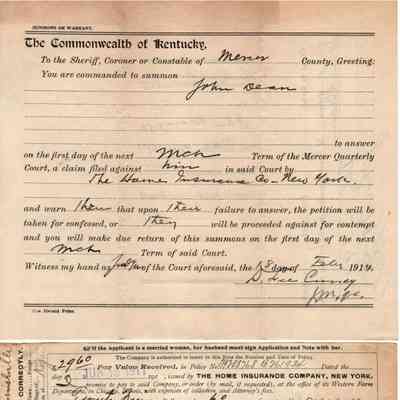 SUMMONS OR WARRANT.
The Commonwealth of Kentucky,
To the Sheriff, Coroner or Constable of Mercer County, Greeting:
You are commanded to summon
John Dean
to answer
on the first day of the next Mch Term of the Mercer Quarterly
Court, a claim filed against him in said Court by
The Home Insurance Co. New York.
and warn them that upon their failure to answer, the petition will be
taken for confessed, or they will be proceeded against for contempt
and you will make due return of this summons on the first day of the next
Mch Term of said Court.
Witness my hand as Judge of the Court aforesaid, the 8 day of Feb 1919.
The Herald Print.
If the Applicant is a married woman, her husband must sign Application and Note with her.
The Company is authorized to insert in this Note the Number and Date of Policy.
$ 2960
For Value Received, in Policy Dated the
issued by THE HOME INSURANCE COMPANY, NEW YORK,
promise to pay to said Company, or order (by mail, if requested), at the office of its Western Farm
Department, in Chicago, Illinois, with expenses of collecting and Attorney's fees.
CORRECTLY.